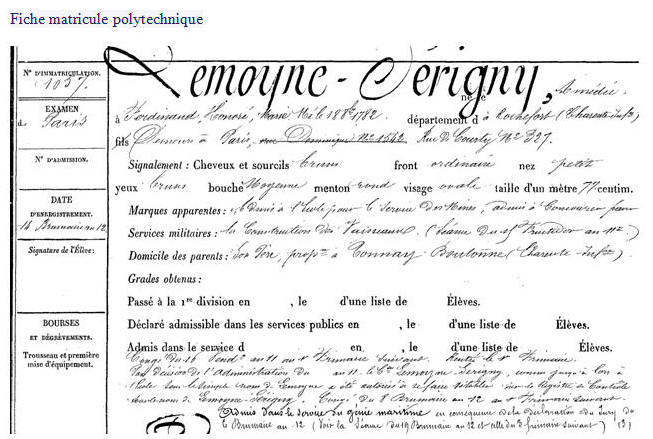 Fiche matricule polytechnique
N° D'IMMATRICULATION.
1057.
EXAMEN
d Paris
N° D'ADMISSION.
DATE
D'ENREGISTREMENT.
Brumaire an 12
Signature de l'Élève:
BOURSES
ET DÉGRÈVEMENTS.
Trousseau et première
mise d'équipement.
Lemoyne-Sérigny, Amédée
né le
à Ferdinand, Honoré, Marie Né le 1782. département d à Rochefort (Charente Infre)
fils Demeure à Paris, rue Dominique N° 1542 Rue de Courty N° 327.
Signalement: Cheveux et sourcils bruns front ordinaire nez petit
yeux bruns bouche Moyenne menton rond visage ovale taille d'un mètre 77 centim.
Marques apparentes: Admis à l'Ecole pour le Service des Mines, admis à Concourir pour
Services militaires: les Constructions des Vaisseaux. (Séance du Fructidor an 11e)
Domicile des parents: Son Père, propre à Tonnay Boutonne (Charente Infre)
Grades obtenus:
Passé à la 1re division en , le d'une liste de Élèves.
Déclaré admissible dans les services publics en , le d'une liste de Élèves.
Admis dans le service d en , le d'une liste de Élèves.
Congé du 16 Vendre an 11 au Frimaire suivant. Rentré le Frimaire.
Par décision de l'Administration du an 11. le Cen Lemoyne Serigny, connu jusqu'à lors à
l'Ecole sous le simple nom de Lemoyne a été autorisé à se faire sur le Registre de Contrôle
sous le nom de Lemoyne-Sérigny. Congé du 8 Brumaire an 12 au Frimaire suivant.
Admis dans le service du génie maritime en conséquence de la déclaration du Jury du
Brumaire an 12 (Voir la Séance du 19 Brumaire an 12 et celle du 2 frimaire suivant) (3)